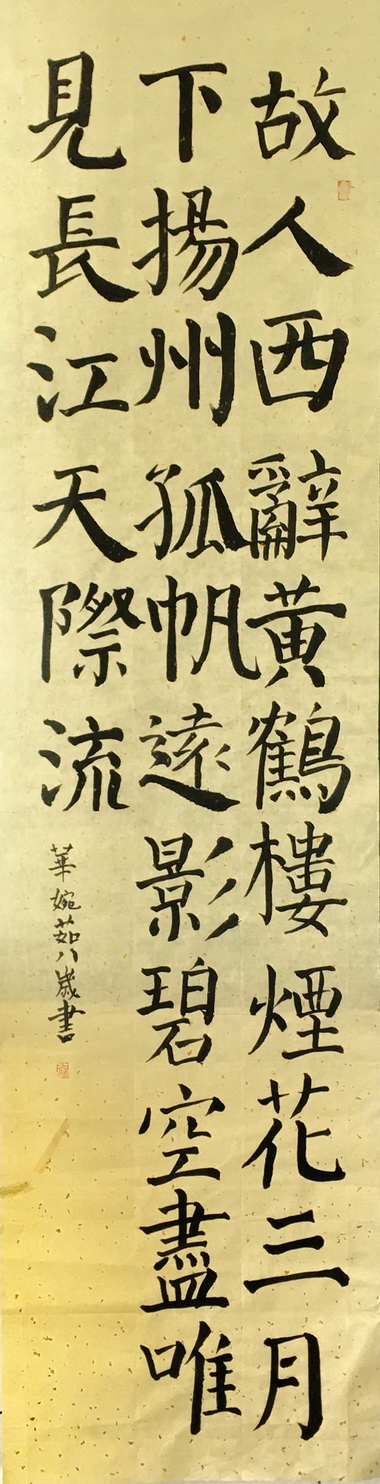 故人西辭黃鶴樓煙花三月
下揚州孤帆遠影碧空盡唯
見長江天際流
華婉茹八歲書